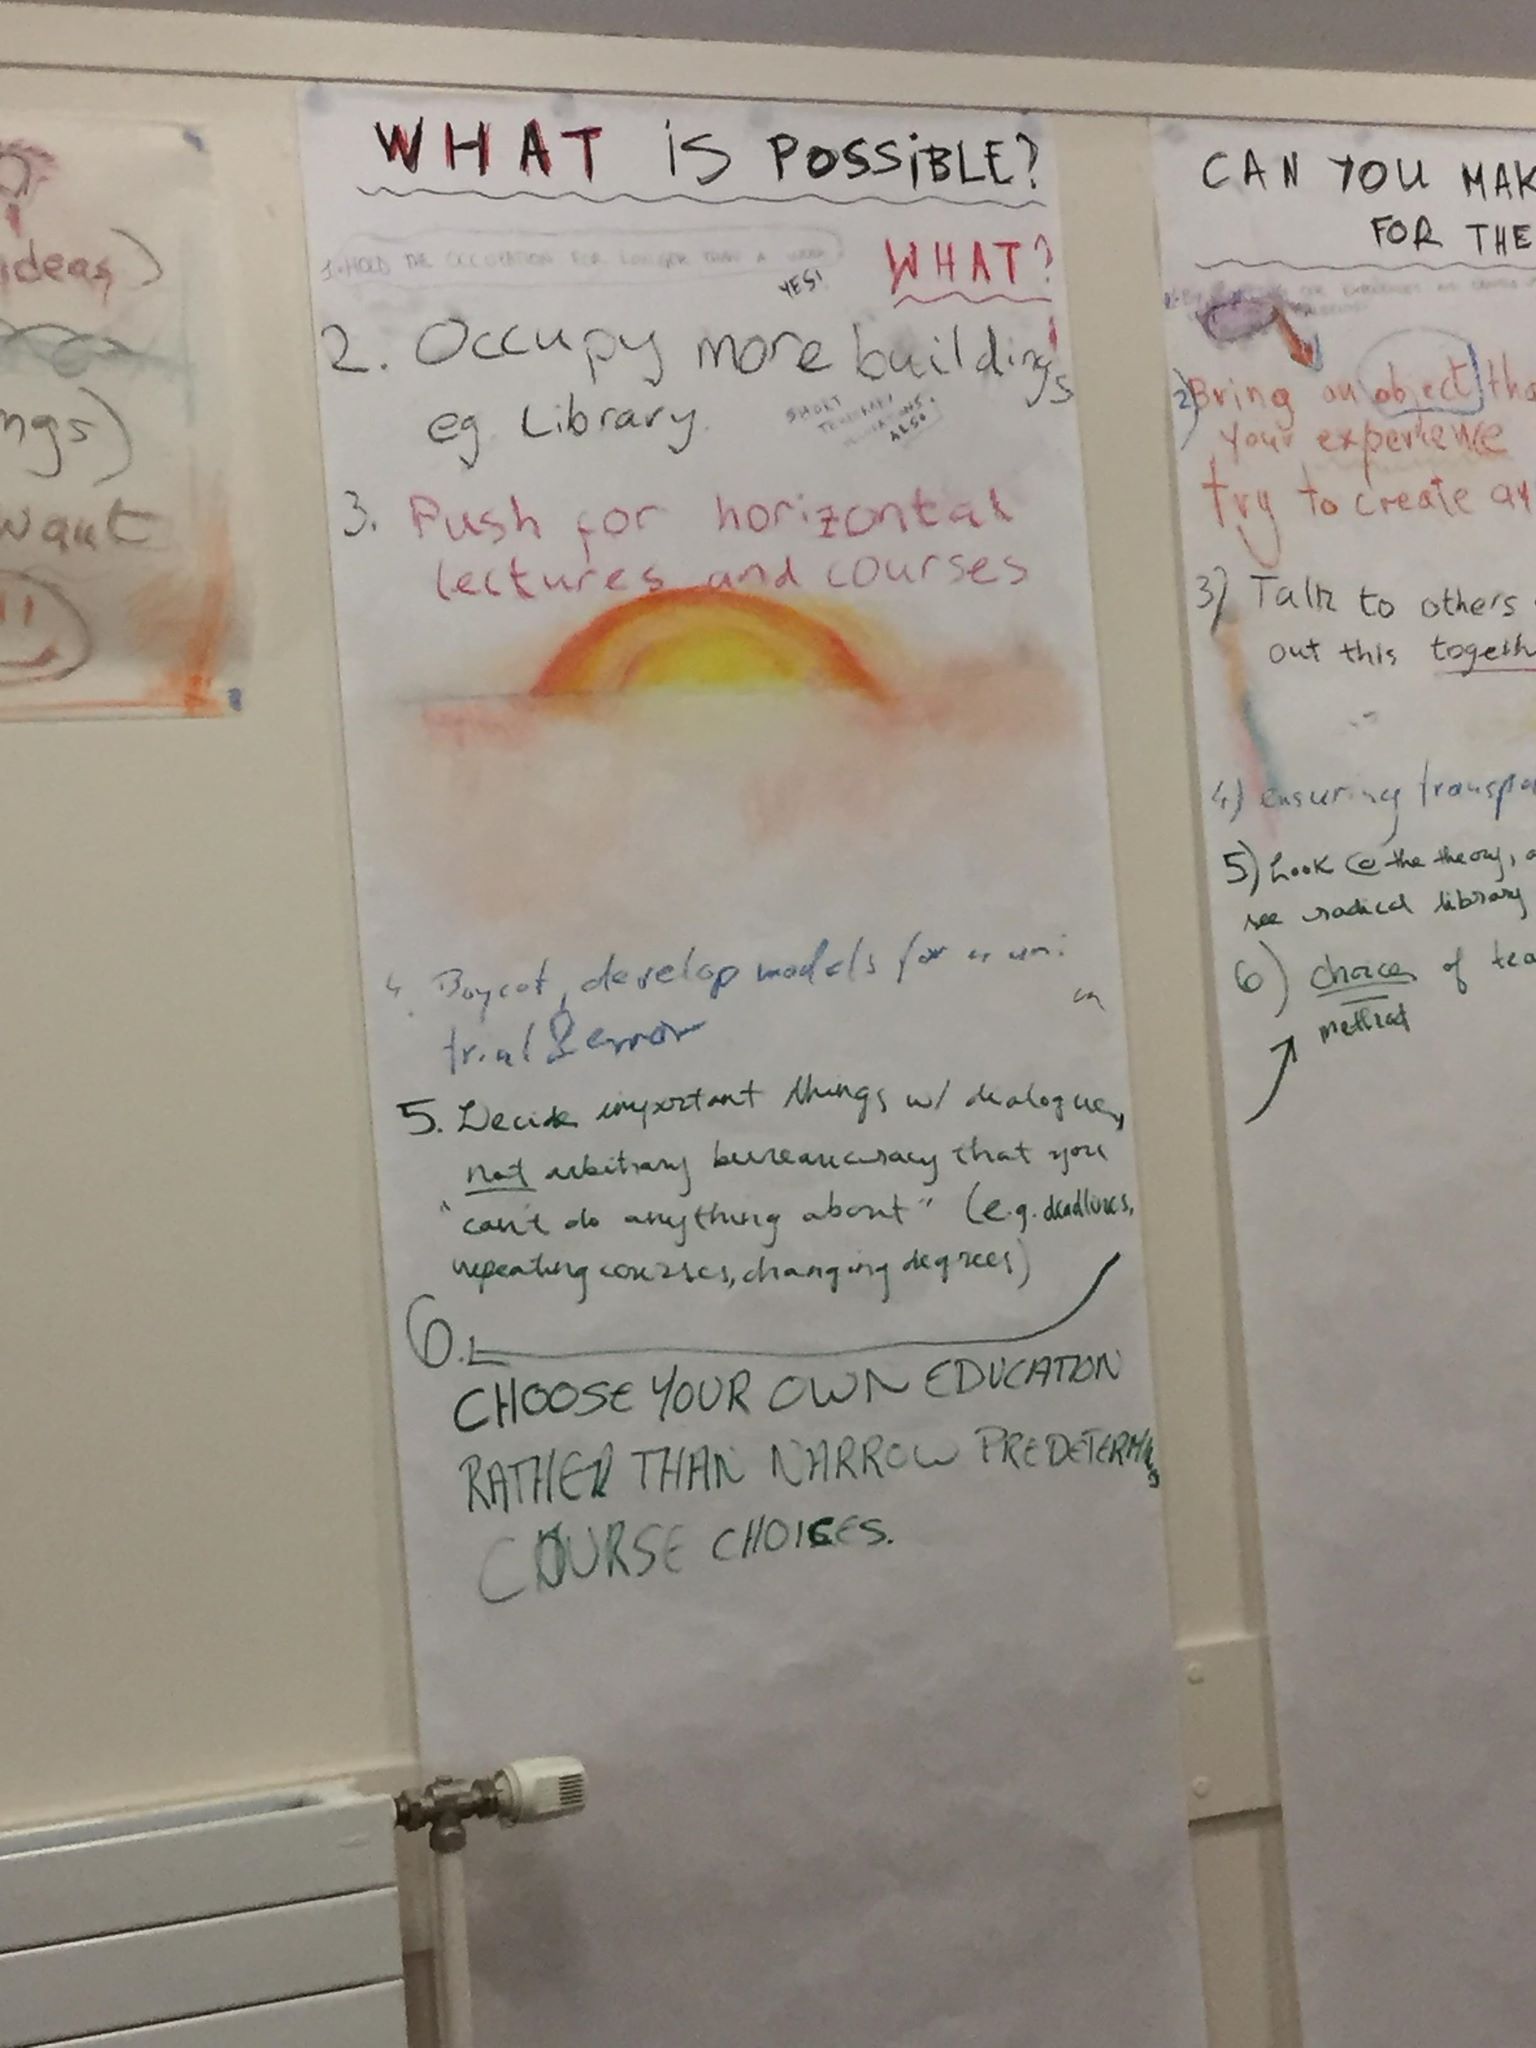 ideas)
ngs)
want
WHAT iS POSSiBLE?
1. HOLD THE OCCUPATION FOR LONGER THAN A WEEK
YES!
WHAT?
2. Occupy more buildings!
eg Library
SHORT
ALSO
3. Push for horizontal
lectures and courses
4. Boycot, develop models for a uni
trial & error
5. Decide important things w/ dialogue,
not arbitrary bureaucracy that you
"can't do anything about" (e.g. deadlines,
repeating courses, changing degrees)
6.
CHOOSE YOUR OWN EDUCATION
RATHER THAN NARROW PREDETERMI
COURSE CHOICES.
CAN YOU MAK
FOR THE
2) Bring an object tha
your experience
try to create an
3) Talk to others
out this togeth
4) ensuring transpa
5) Look @ the theory, a
see radical library
6) choices of tea
method